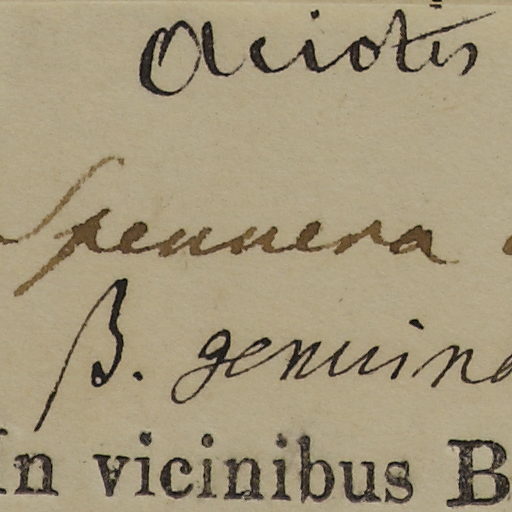 Aciotis
Spennera
β. genuina
In vicinibus B